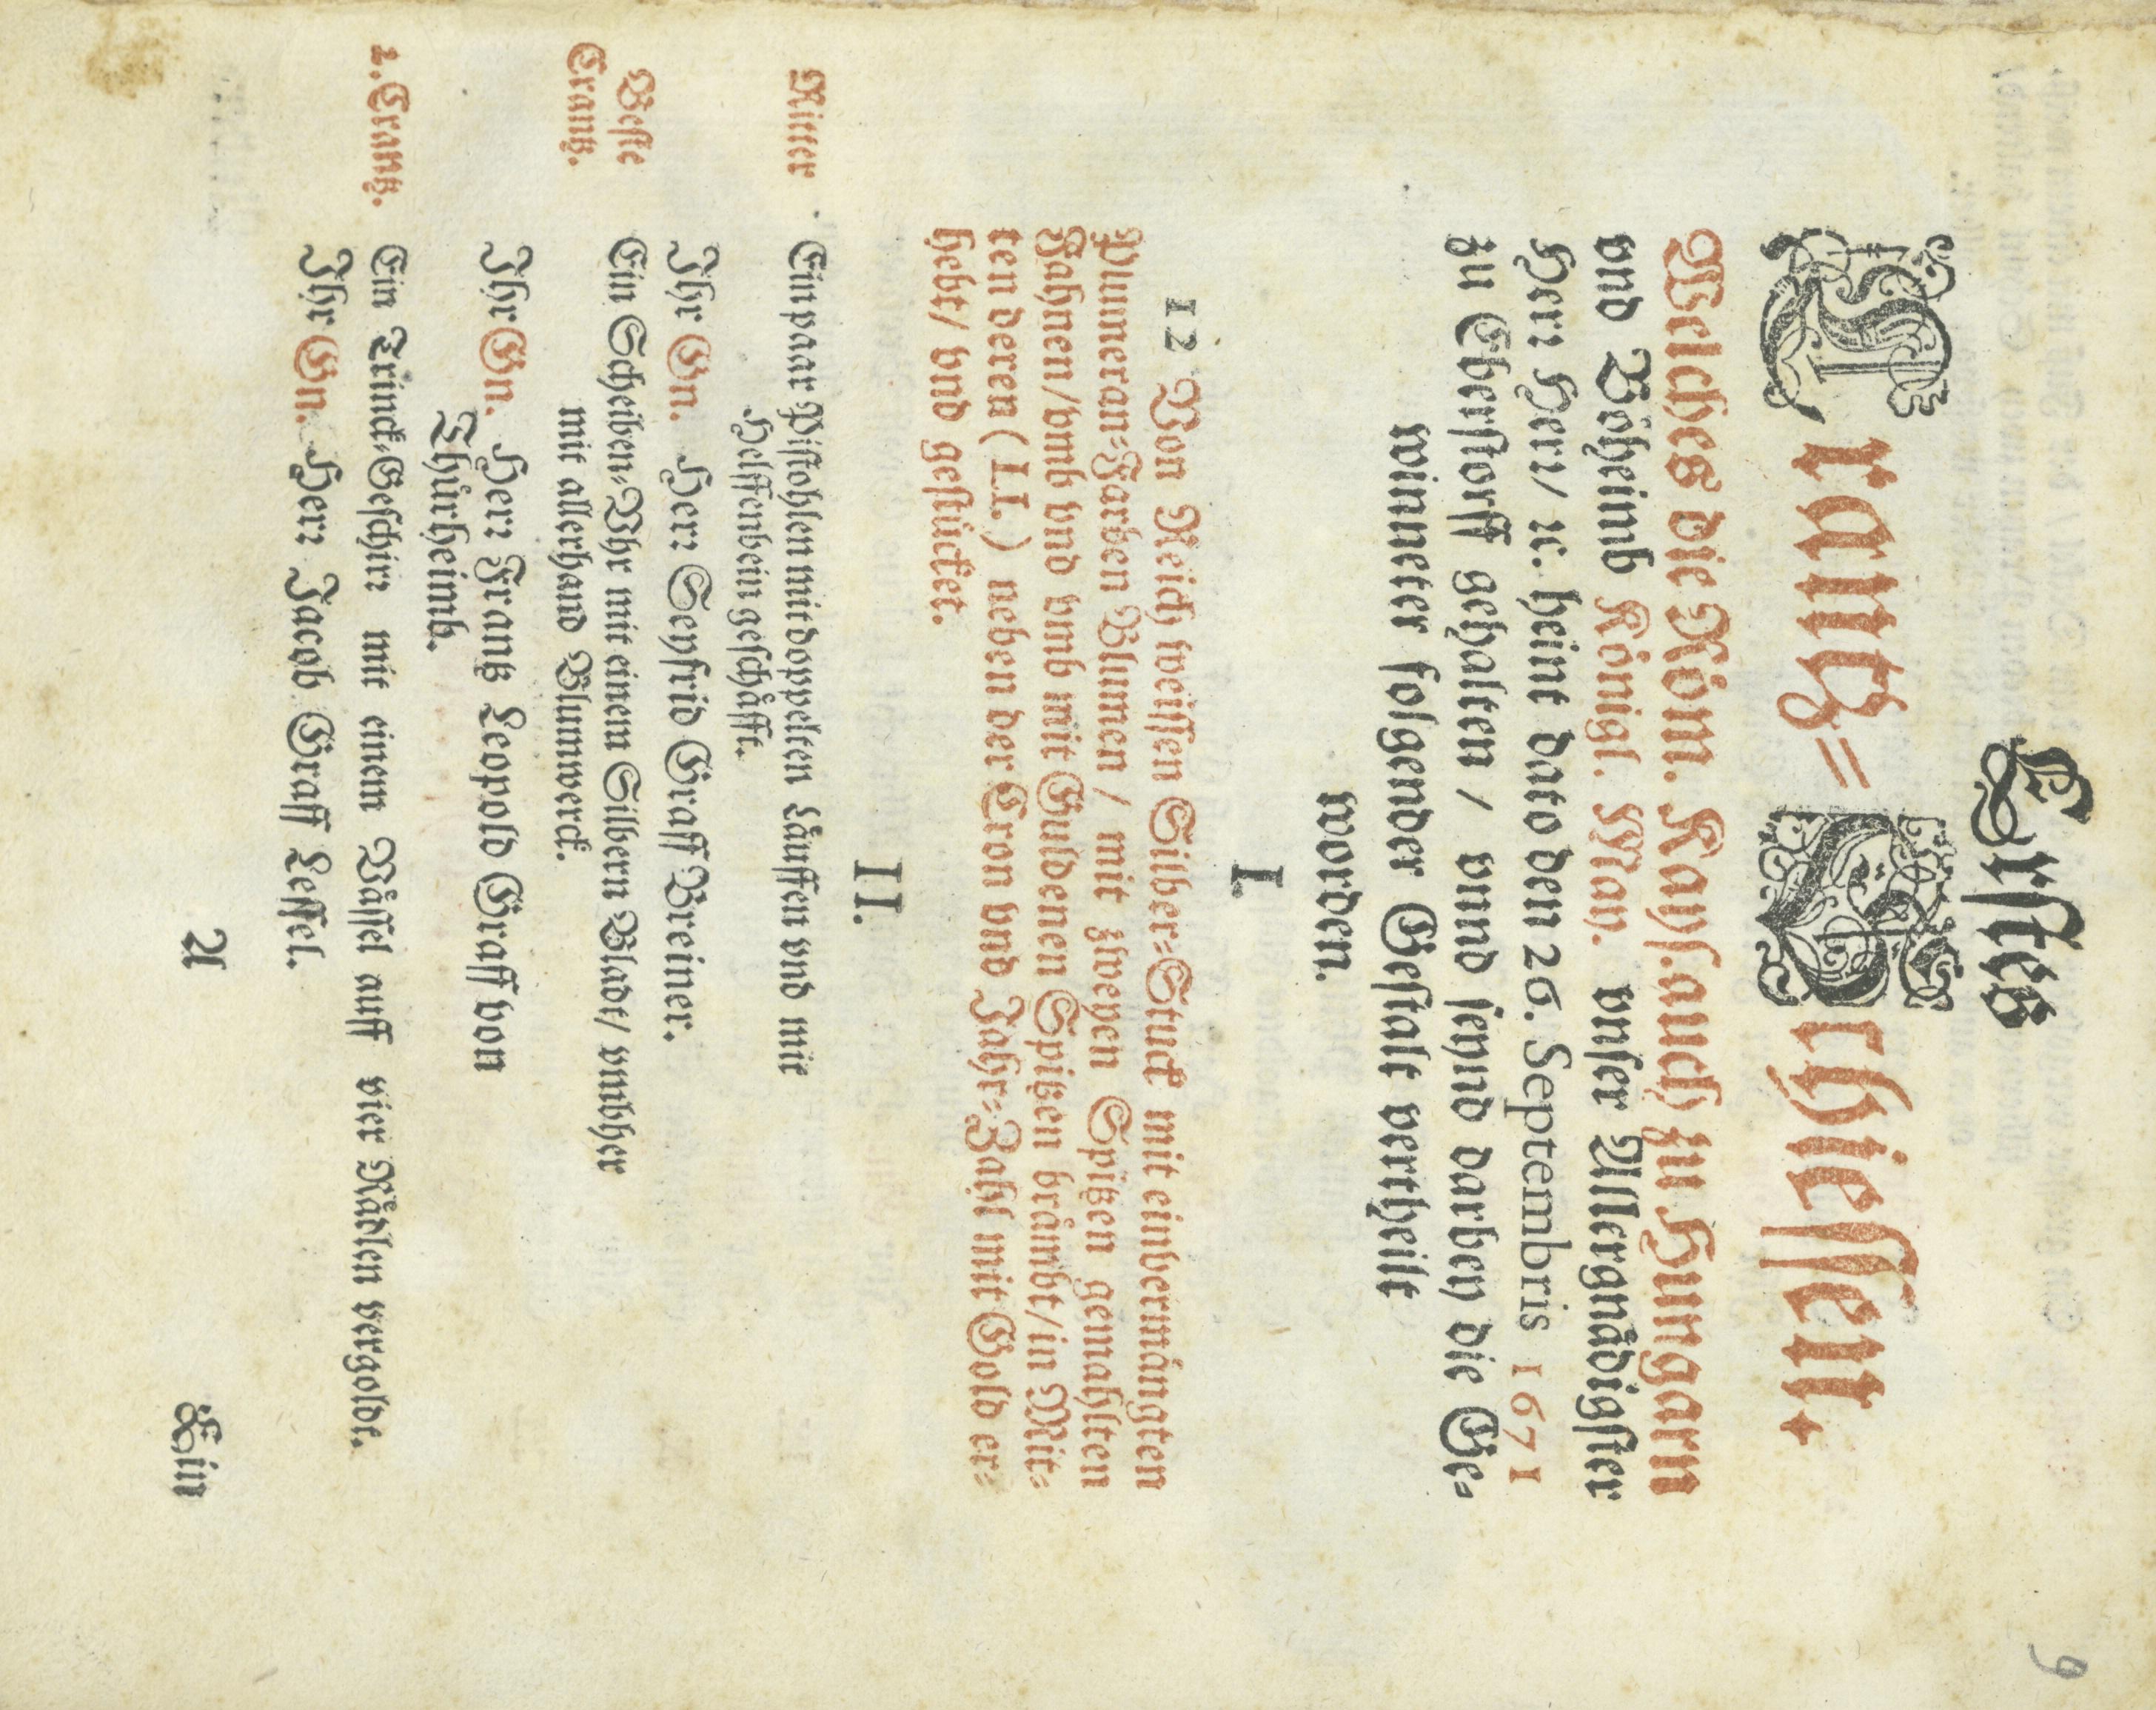 9
Erstes
Crantz=Schiessen.
Welches die Röm. Kays. auch zu Hungarn
vnd Böheimb Königl. May. vnser Allergnädigster
Herr Herr/ ꝛc. heint dato den 26. Septembris 1671
zu Eberstorff gehalten / vnnd seynd darbey die Ge=
winneter folgender Gestalt vertheilt
worden.
I.
12 Von Reich weissen Silber=Stuck mit einbermängten
Plumeran=Farben Blumen / mit zweyen Spitzen gemahlten
Fahnen/vmb vnd vmb mit Guldenen Spitzen brämbt/in Mit=
ten deren (L I.) neben der Cron vnd Jahr=Zahl mit Gold er=
hebt/ vnd gestücket.
II.
Ritter
Ein paar Pistohlen mit doppelten Läuffen vnd mit
Helffenbein geschäfft.
Ihr Gn. Herr Seyfrid Graff Breiner.
Beste
Crantz.
Ein Scheiben=Vhr mit einem Silbern Bladt/ vmbher
mit allerhand Blumwerck.
Ihr Gn. Herr Frantz Leopold Graff von
Thürheimb.
2. Crantz.
Ein Trinck=Geschirr mit einem Vässel auff vier Rädlen vergoldt.
Ihr Gn. Herr Jacob Graff Lessel.
A
Ein